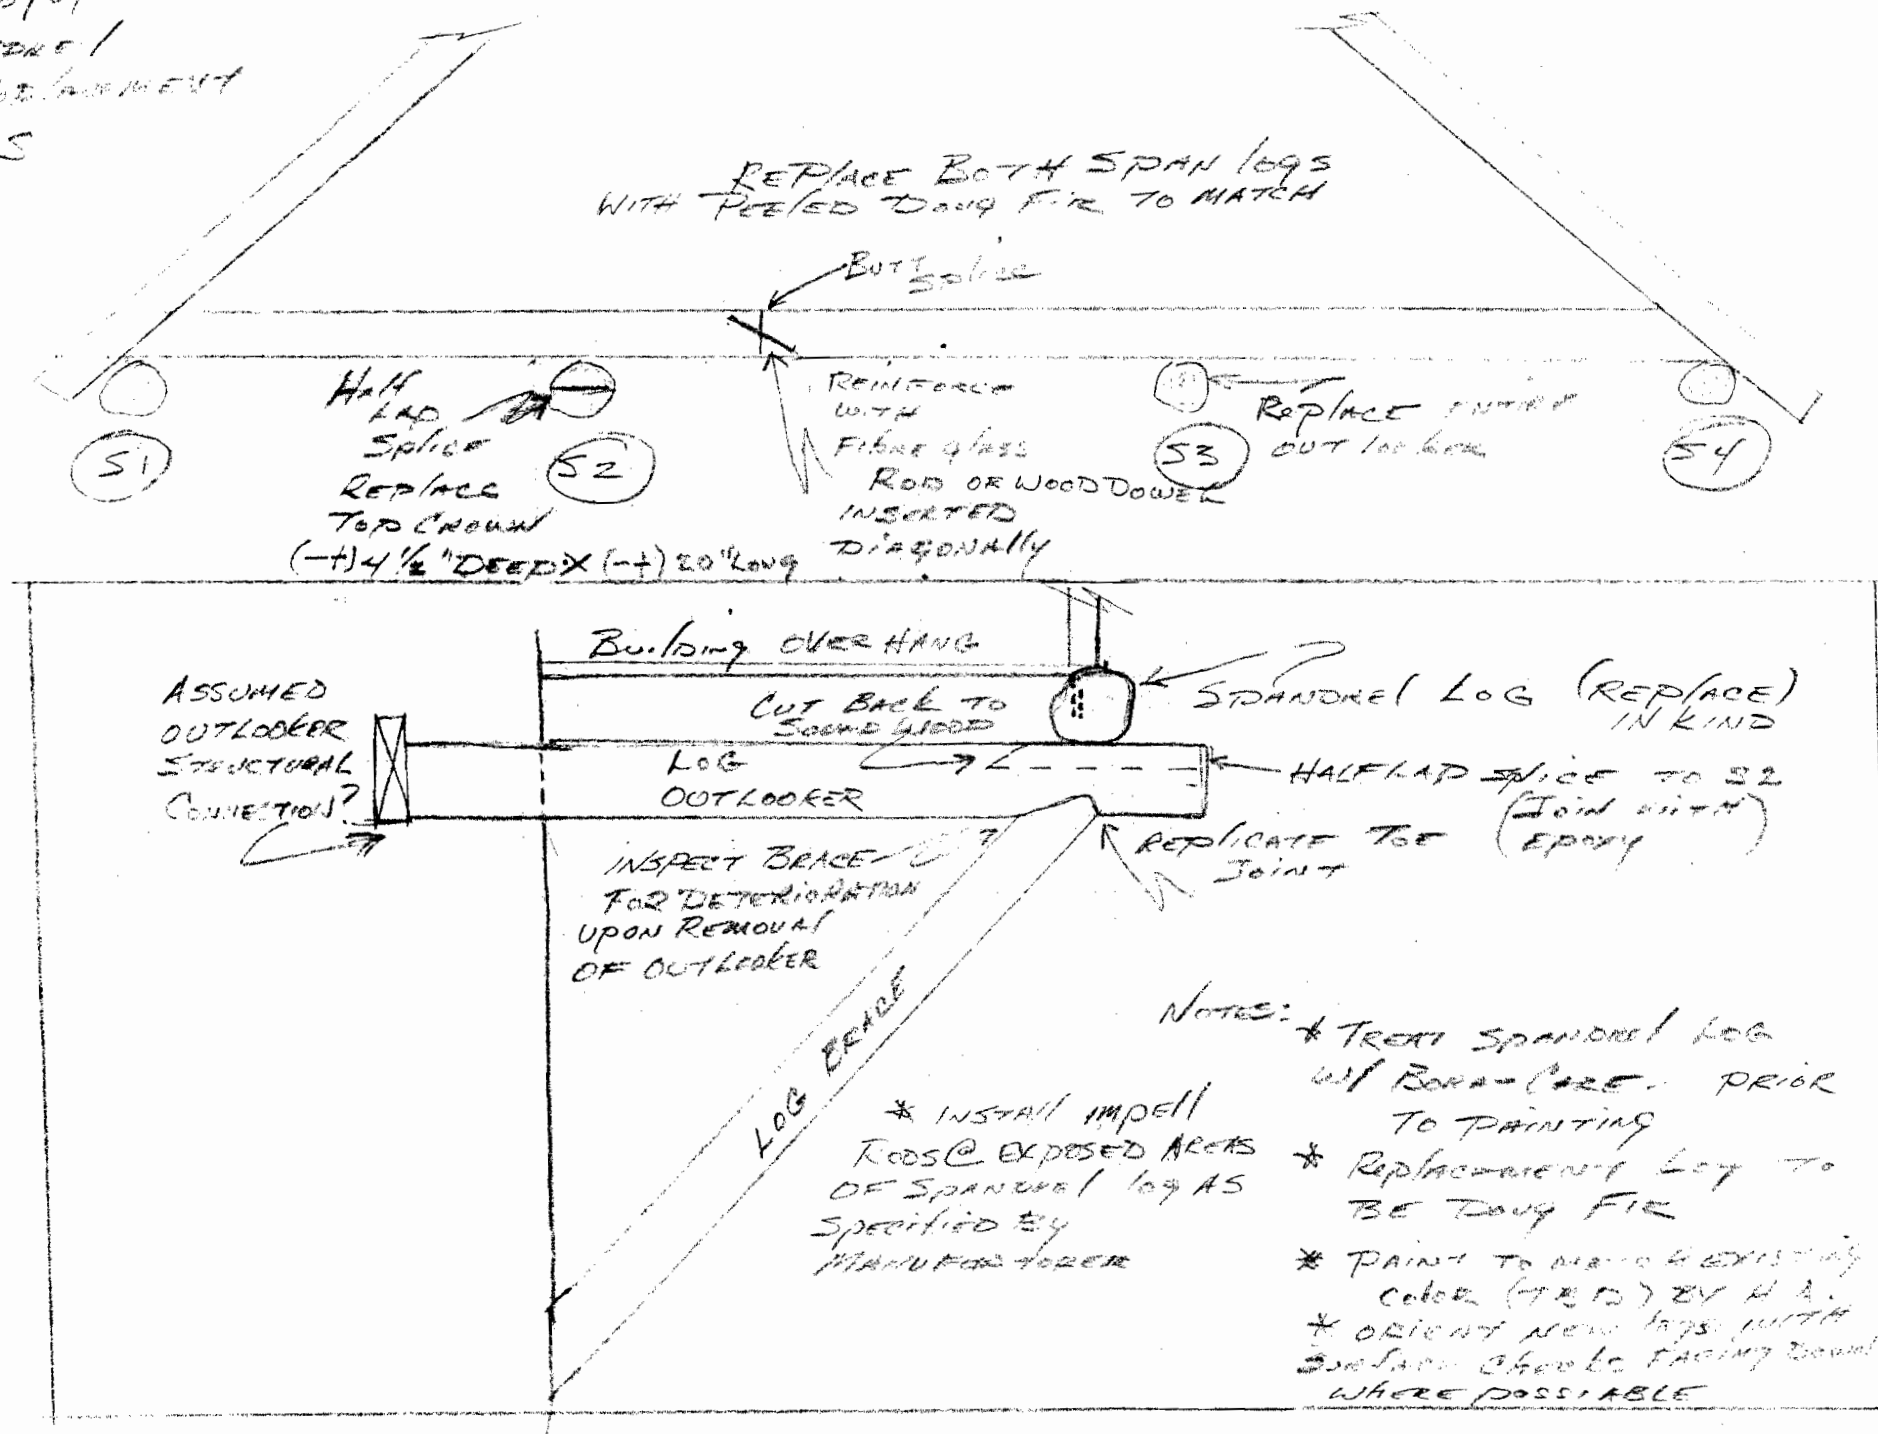 S
REPLACE BOTH SPAN LOGS
WITH PEELED DOUG FIR TO MATCH
BUTT
SPLICE
HALF
LAP
SPLICE
REPLACE
TOP CROWN
(-+) 4 1/2" DEEP X (-+) 20" LONG
REINFORCE
WITH
FIBRE GLASS
ROD OR WOOD DOWEL
INSERTED
DIAGONALLY
REPLACE ENTIRE
OUTLOOKER
S1
S2
S3
S4
BUILDING OVERHANG
ASSUMED
OUTLOOKER
STRUCTURAL
CONNECTION?
CUT BACK TO
SOUND WOOD
LOG
OUTLOOKER
SPANDREL LOG (REPLACE)
IN KIND
HALF LAP SPLICE TO S2
(JOIN WITH
EPOXY)
REPLICATE TOE
JOINT
INSPECT BRACE
FOR DETERIORATION
UPON REMOVAL
OF OUTLOOKER
LOG BRACE
* INSTALL IMPELL
RODS @ EXPOSED AREAS
OF SPANDREL LOG AS
SPECIFIED BY
MANUFACTORER
NOTES:
* TREAT SPANDREL LOG
W/ BORA-CARE. PRIOR
TO PAINTING
* REPLACEMENT LOG TO
BE DOUG FIR
* PAINT TO MATCH EXISTING
COLOR (TBD) BY H.A.
* ORIENT NEW LOGS WITH
SURFACE CHECKS FACING DOWN
WHERE POSSIABLE